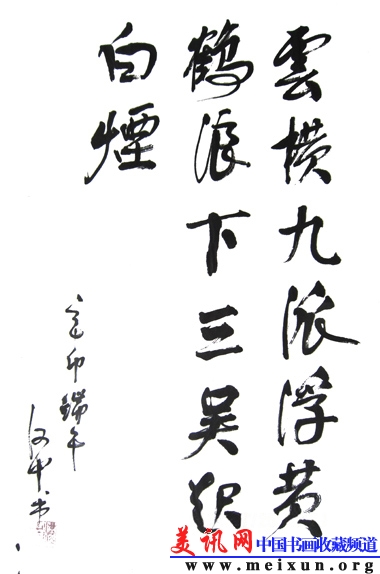 雲横九派浮黄
鶴浪下三吴起
白煙
辛卯端午
书
美讯网 中国书画收藏频道
www.meixun.org